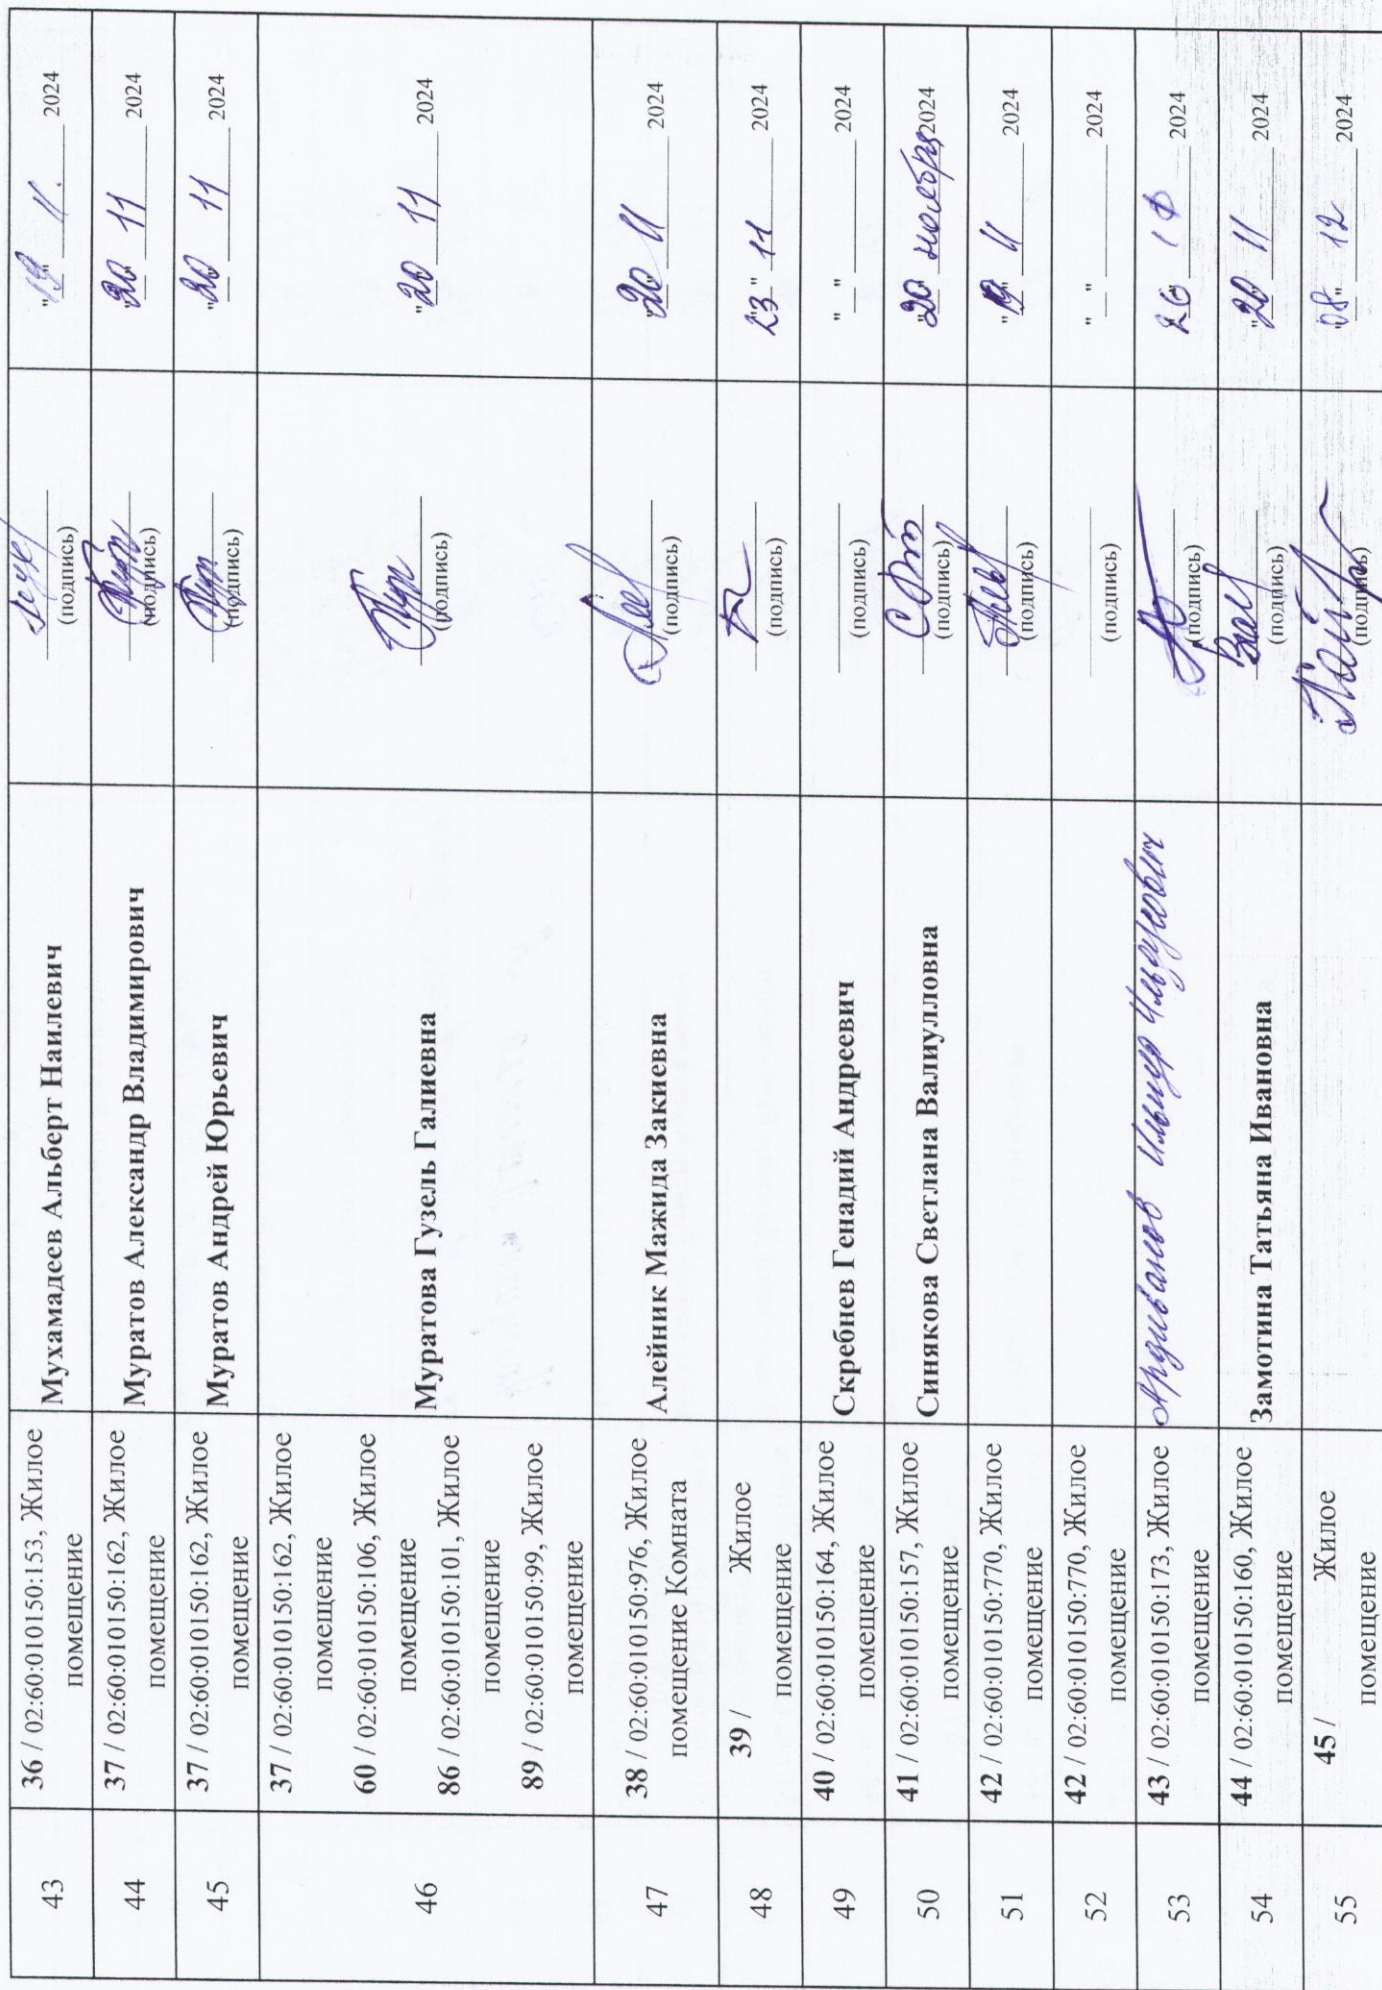 43
36 / 02:60:010150:153, Жилое
помещение
Мухамадеев Альберт Наилевич
(подпись)
"19" 11. 2024
44
37 / 02:60:010150:162, Жилое
помещение
Муратов Александр Владимирович
(подпись)
"20" 11 2024
45
37 / 02:60:010150:162, Жилое
помещение
Муратов Андрей Юрьевич
(подпись)
"20" 11 2024
46
37 / 02:60:010150:162, Жилое
помещение
60 / 02:60:010150:106, Жилое
помещение
86 / 02:60:010150:101, Жилое
помещение
89 / 02:60:010150:99, Жилое
помещение
Муратова Гузель Галиевна
(подпись)
"20" 11 2024
47
38 / 02:60:010150:976, Жилое
помещение Комната
Алейник Мажида Закиевна
(подпись)
"20" 11 2024
48
39 / Жилое
помещение
(подпись)
"23" 11 2024
49
40 / 02:60:010150:164, Жилое
помещение
Скребнев Генадий Андреевич
(подпись)
"__" ______ 2024
50
41 / 02:60:010150:157, Жилое
помещение
Синякова Светлана Валиулловна
(подпись)
"20" ноября 2024
51
42 / 02:60:010150:770, Жилое
помещение
(подпись)
"19" 11 2024
52
42 / 02:60:010150:770, Жилое
помещение
(подпись)
"__" ______ 2024
53
43 / 02:60:010150:173, Жилое
помещение
Ардуванов
(подпись)
2024
54
44 / 02:60:010150:160, Жилое
помещение
Замотина Татьяна Ивановна
(подпись)
"20" 11 2024
55
45 / Жилое
помещение
(подпись)
"08" 12 2024